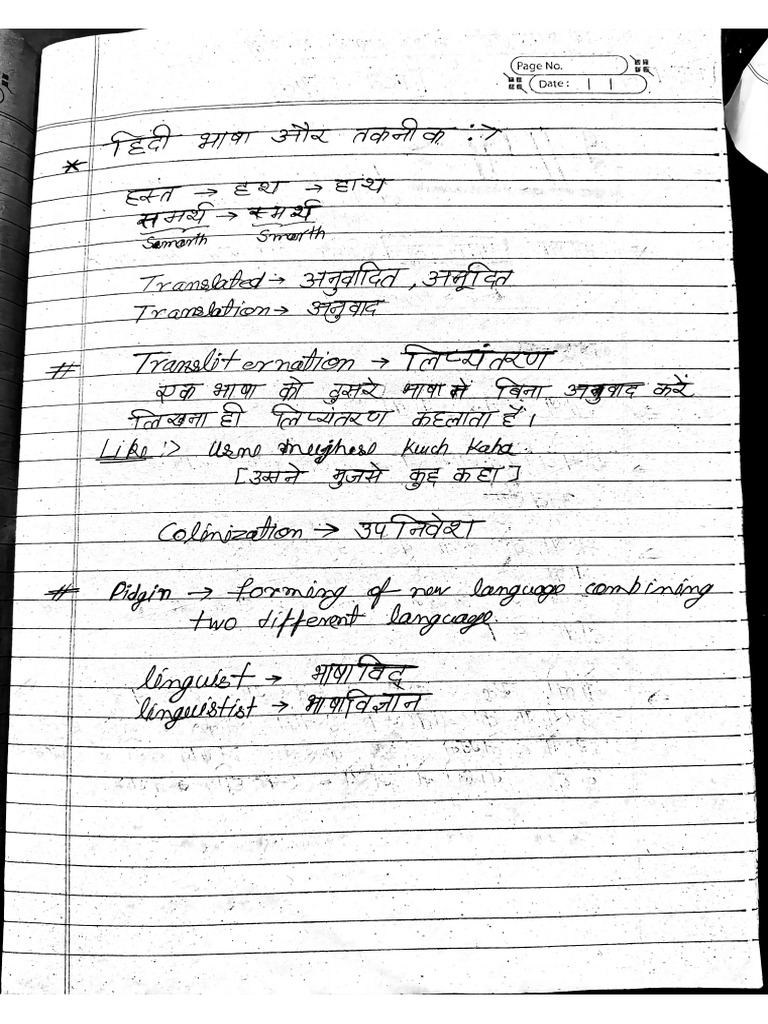 Page No.
Date : | |
* हिंदी भाषा और तकनीक :->
हस्त → हथ → हाथ
समर्थ → स्मर्थ
Samarth Smarth
Translated → अनुवादित , अनूदित
Translation → अनुवाद
# Transliternation → लिप्यंतरण
एक भाषा को दुसरे भाषा में बिना अनुवाद करें
लिखना ही लिप्यंतरण कहलाता हैं।
Like :> Usne mujhese Kuch Kaha.
[उसने मुजसे कुछ कहा]
Colinization → उपनिवेश
# Pidgin → forming of new language combining
two different language.
linguist → भाषाविद्
linguistist → भाषाविज्ञान